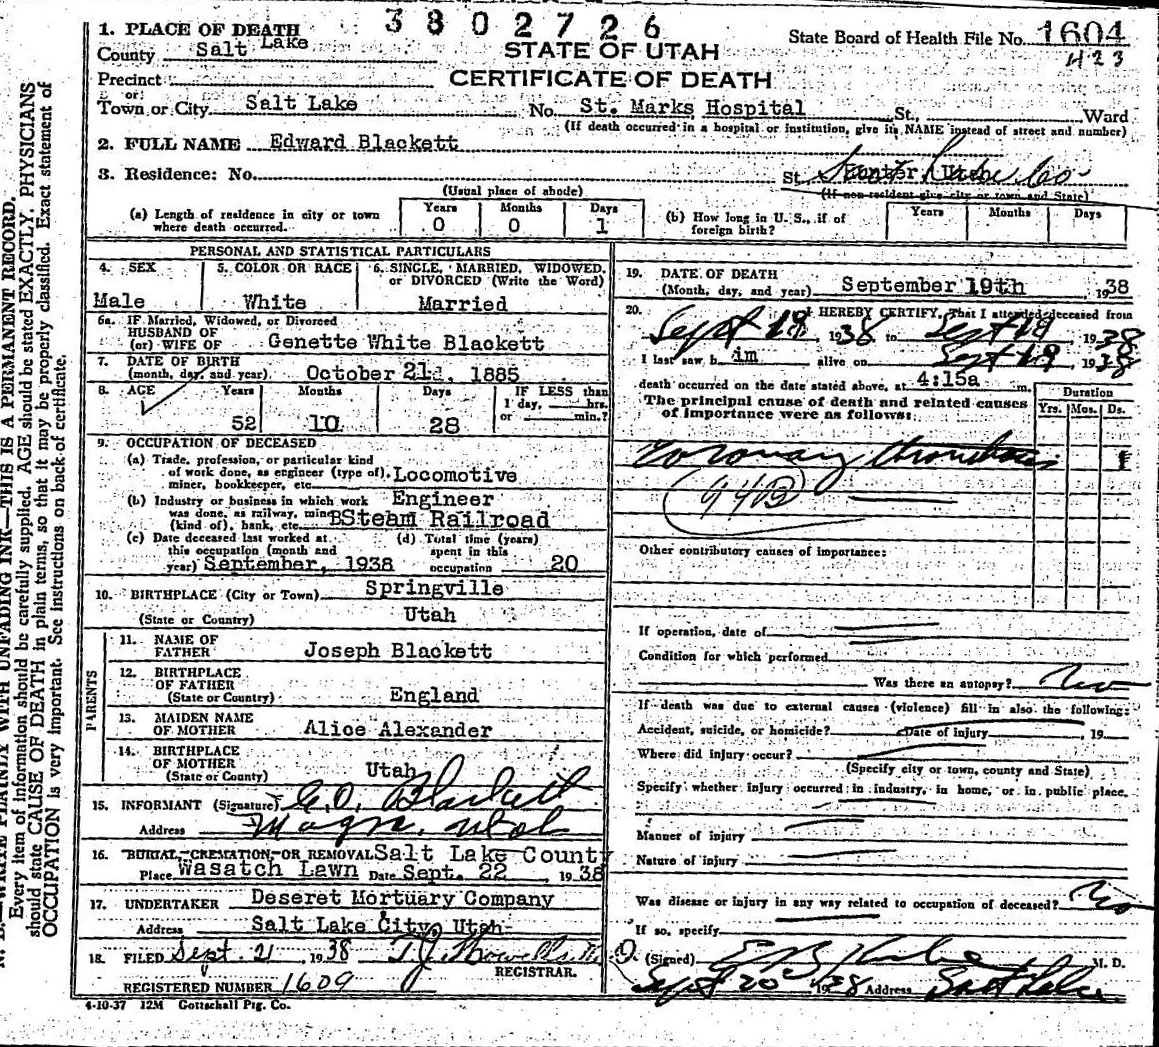 3802726
1. PLACE OF DEATH
County Salt Lake
STATE OF UTAH
State Board of Health File No. 1604
423
Precinct
CERTIFICATE OF DEATH
or
Town or City Salt Lake No. St. Marks Hospital St., Ward
(If death occurred in a hospital or institution, give its NAME instead of street and number)
2. FULL NAME Edward Blackett
3. Residence: No. St. Hunter, Utah
Salt Lake Co
(Usual place of abode) (If non-resident give city or town and State)
(a) Length of residence in city or town where death occurred. Years 0 Months 0 Days 1
(b) How long in U. S., if of foreign birth? Years Months Days
PERSONAL AND STATISTICAL PARTICULARS
4. SEX Male
5. COLOR OR RACE White
6. SINGLE, MARRIED, WIDOWED, or DIVORCED (Write the Word) Married
6a. IF Married, Widowed, or Divorced
HUSBAND OF
(or) WIFE OF Genette White Blackett
7. DATE OF BIRTH
(month, day, and year) October 21, 1885
8. AGE Years 52 Months 10 Days 28 IF LESS than 1 day, hrs. or min.?
9. OCCUPATION OF DECEASED
(a) Trade, profession, or particular kind
of work done, as engineer (type of),
miner, bookkeeper, etc. Locomotive
Engineer
(b) Industry or business in which work
was done, as railway, mine
(kind of), bank, etc. Steam Railroad
(c) Date deceased last worked at
this occupation (month and
year) September, 1938
(d) Total time (years)
spent in this
occupation 20
10. BIRTHPLACE (City or Town) Springville
(State or Country) Utah
PARENTS
11. NAME OF
FATHER Joseph Blackett
12. BIRTHPLACE
OF FATHER
(State or Country) England
13. MAIDEN NAME
OF MOTHER Alice Alexander
14. BIRTHPLACE
OF MOTHER
(State or Country) Utah
15. INFORMANT (Signature) G.O. Blackett
Address Magna, Utah
16. BURIAL, CREMATION, OR REMOVAL Salt Lake County
Place Wasatch Lawn Date Sept. 22, 1938
17. UNDERTAKER Deseret Mortuary Company
Address Salt Lake City, Utah
18. FILED Sept. 21 1938
REGISTRAR.
REGISTERED NUMBER 1609
4-10-37 12M Gottschall Ptg. Co.
19. DATE OF DEATH
(Month, day, and year) September 19th, 1938
20. I HEREBY CERTIFY, That I attended deceased from
Sept 18, 1938 to Sept 19 1938
I last saw h im alive on Sept 19, 1938
death occurred on the date stated above, at 4:15a m.
The principal cause of death and related causes
of importance were as follows:
Duration
Yrs. Mos. Ds.
Coronary thrombosis 1
Other contributory causes of importance:
If operation, date of
Condition for which performed
Was there an autopsy? No
If death was due to external causes (violence) fill in also the following:
Accident, suicide, or homicide? Date of injury , 19
Where did injury occur?
(Specify city or town, county and State)
Specify whether injury occurred in industry, in home, or in public place.
Manner of injury
Nature of injury
Was disease or injury in any way related to occupation of deceased? No
If so, specify
(Signed) M. D.
Sept 20 1938 Address Salt Lake
WRITE PLAINLY WITH UNFADING INK—THIS IS A PERMANENT RECORD.
Every item of information should be carefully supplied. AGE should be stated EXACTLY. PHYSICIANS
should state CAUSE OF DEATH in plain terms, so that it may be properly classified. Exact statement of
OCCUPATION is very important. See instructions on back of certificate.